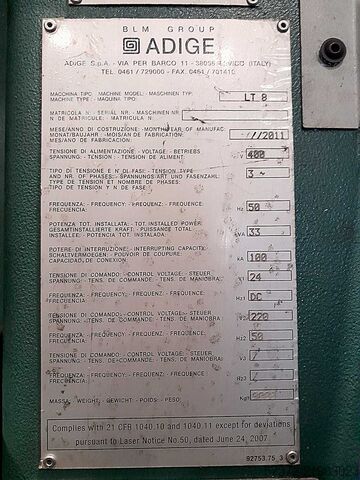 BLM GROUP
ADIGE
ADIGE S.p.A. - VIA PER BARCO 11 - 38056 LEVICO (ITALY)
TEL. 0461 / 729000 - FAX. 0461 / 701410
MACCHINA TIPO: MACHINE MODEL: MASCHINEN TYP:
MACHINE TYPE: - MAQUINA TIPO: LT 8
MATRICOLA N: SERIAL NR: MASCHINEN NR:
N DE MATRICULE: MATRICULA N:
MESE/ANNO DI COSTRUZIONE: - MONTH/YEAR OF MANUFAC.
MONAT/BAUJAHR - MOIS/AN DE FABRICATION: //2011
MES/ANO DE FABRICACION:
TENSIONE DI ALIMENTAZIONE - VOLTAGE - BETRIEBS
SPANNUNG - TENSION - TENSION DE ALIMENT: 400
TIPO DI TENSIONE E N DI FASE: - TENSION TYPE
AND NR OF PHASES: - SPANNUNGS ART UND FASENZAHL:
TYPE DE TENSION ET NOMBRE DE PHASES: 3 ~
TIPO DE TENSION Y N DE FASE
FREQUENZA: FREQUENCY: - FREQUENZ: FREQUENCE:
FRECUENCIA: Hz 50
POTENZA TOT. INSTALLATA: - TOT. INSTALLED POWER
GESAMTINSTALLIERTE KRAFT: - PUISSANCE TOTAL
INSTALLEE: - POTENCIA TOT. INSTALADA: KVA 33
POTERE DI INTERRUZIONE: - INTERRUPTING CAPACITY:
SCHALTVERMOEGEN: - POUVOIR DE COUPURE:
CAPACIDAD, DE CONEXION: KA 100
TENSIONE DI COMANDO: - CONTROL VOLTAGE: - STEUER
SPANNUNG - TENS. DE COMMANDE - TENS. DE MANIOBRA: V1 24
FREQUENZA: - FREQUENCY: - FREQUENZ: - FREQUENCE:
FRECUENCIA: Hz1 DC
TENSIONE DI COMANDO: - CONTROL VOLTAGE: - STEUER
SPANNUNG - TENS. DE COMMANDE - TENS. DE MANIOBRA: V2 220
FREQUENZA: - FREQUENCY: - FREQUENZ: - FREQUENCE:
FRECUENCIA: Hz2 50
TENSIONE DI COMANDO: - CONTROL VOLTAGE: - STEUER
SPANNUNG - TENS. DE COMMANDE - TENS. DE MANIOBRA: V3 /
FREQUENZA: - FREQUENCY: - FREQUENZ: - FREQUENCE:
FRECUENCIA: Hz3 /
MASSA: WEIGHT: GEWICHT: - POIDS: - PESO: Kg
Complies with 21 CFB 1040.10 and 1040.11 except for deviations
pursuant to Laser Notice No.50, dated June 24, 2007.
92753.75_3